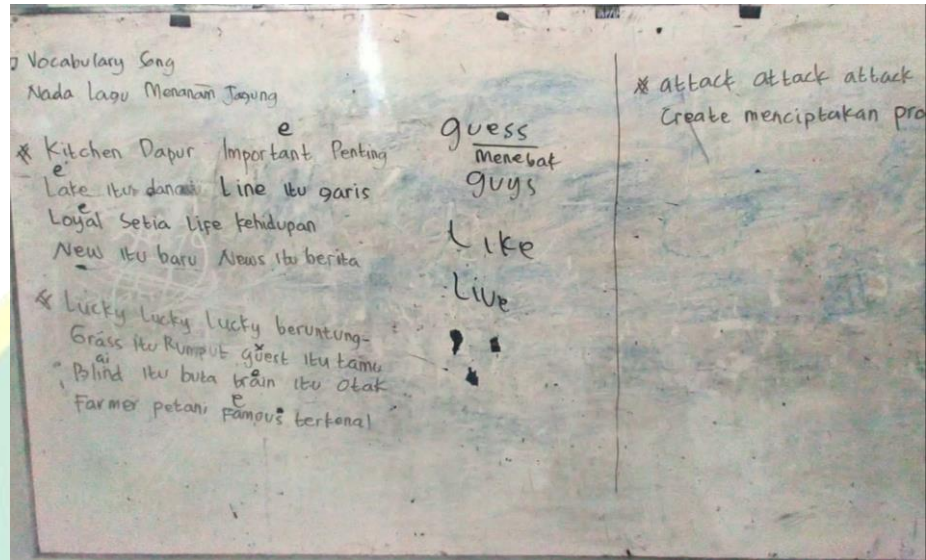 Vocabulary Song
Nada Lagu Menanam Jagung
e
* Kitchen Dapur Important Penting
e
Lake itu danau Line itu garis
e
Loyal Setia Life kehidupan
New itu baru News itu berita
* Lucky Lucky Lucky beruntung-
Grass itu Rumput guest itu tamu
ai
Blind itu buta brain itu Otak
e
Farmer petani Famous terkenal
guess
Menebak
guys
Like
Live
* attack attack attack
Create menciptakan pro